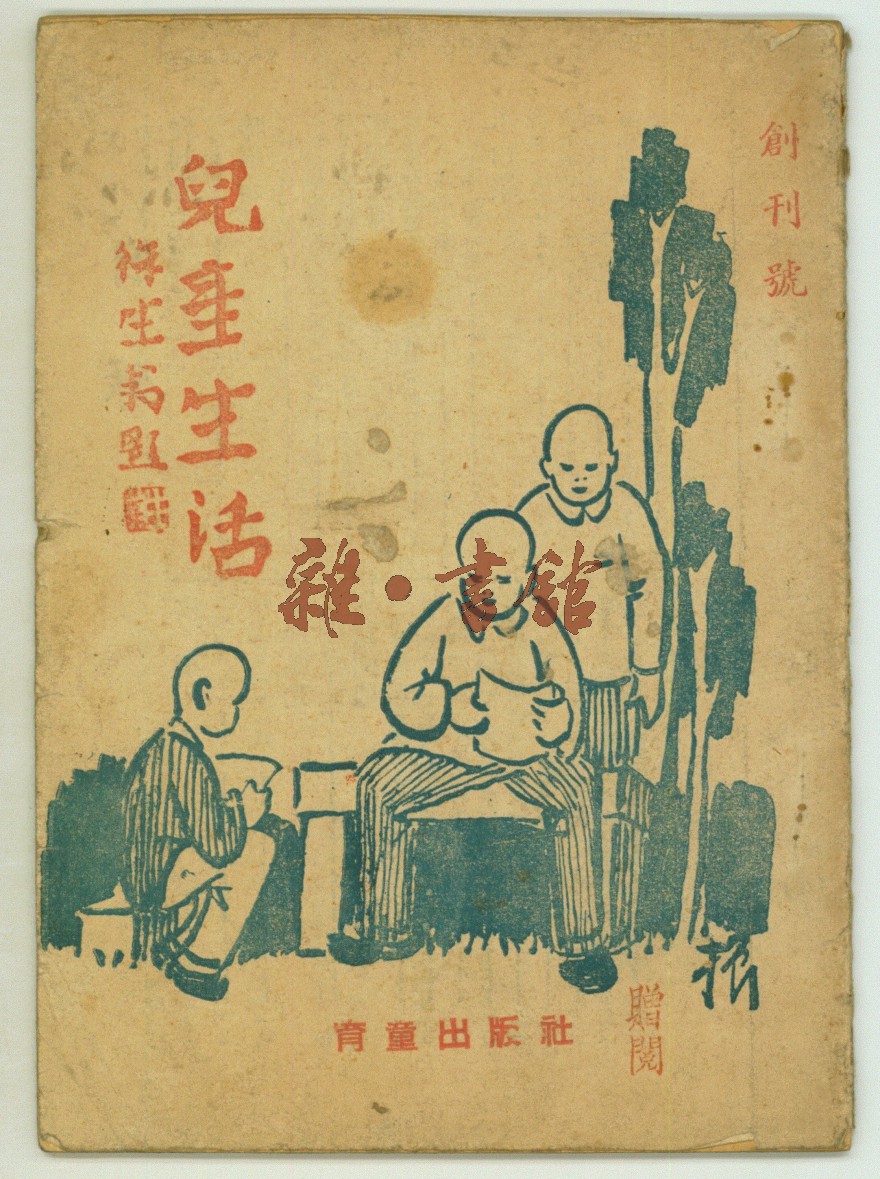 創刊號
兒童生活
徐生翁題
雜·書館
育童出版社
贈閱
振